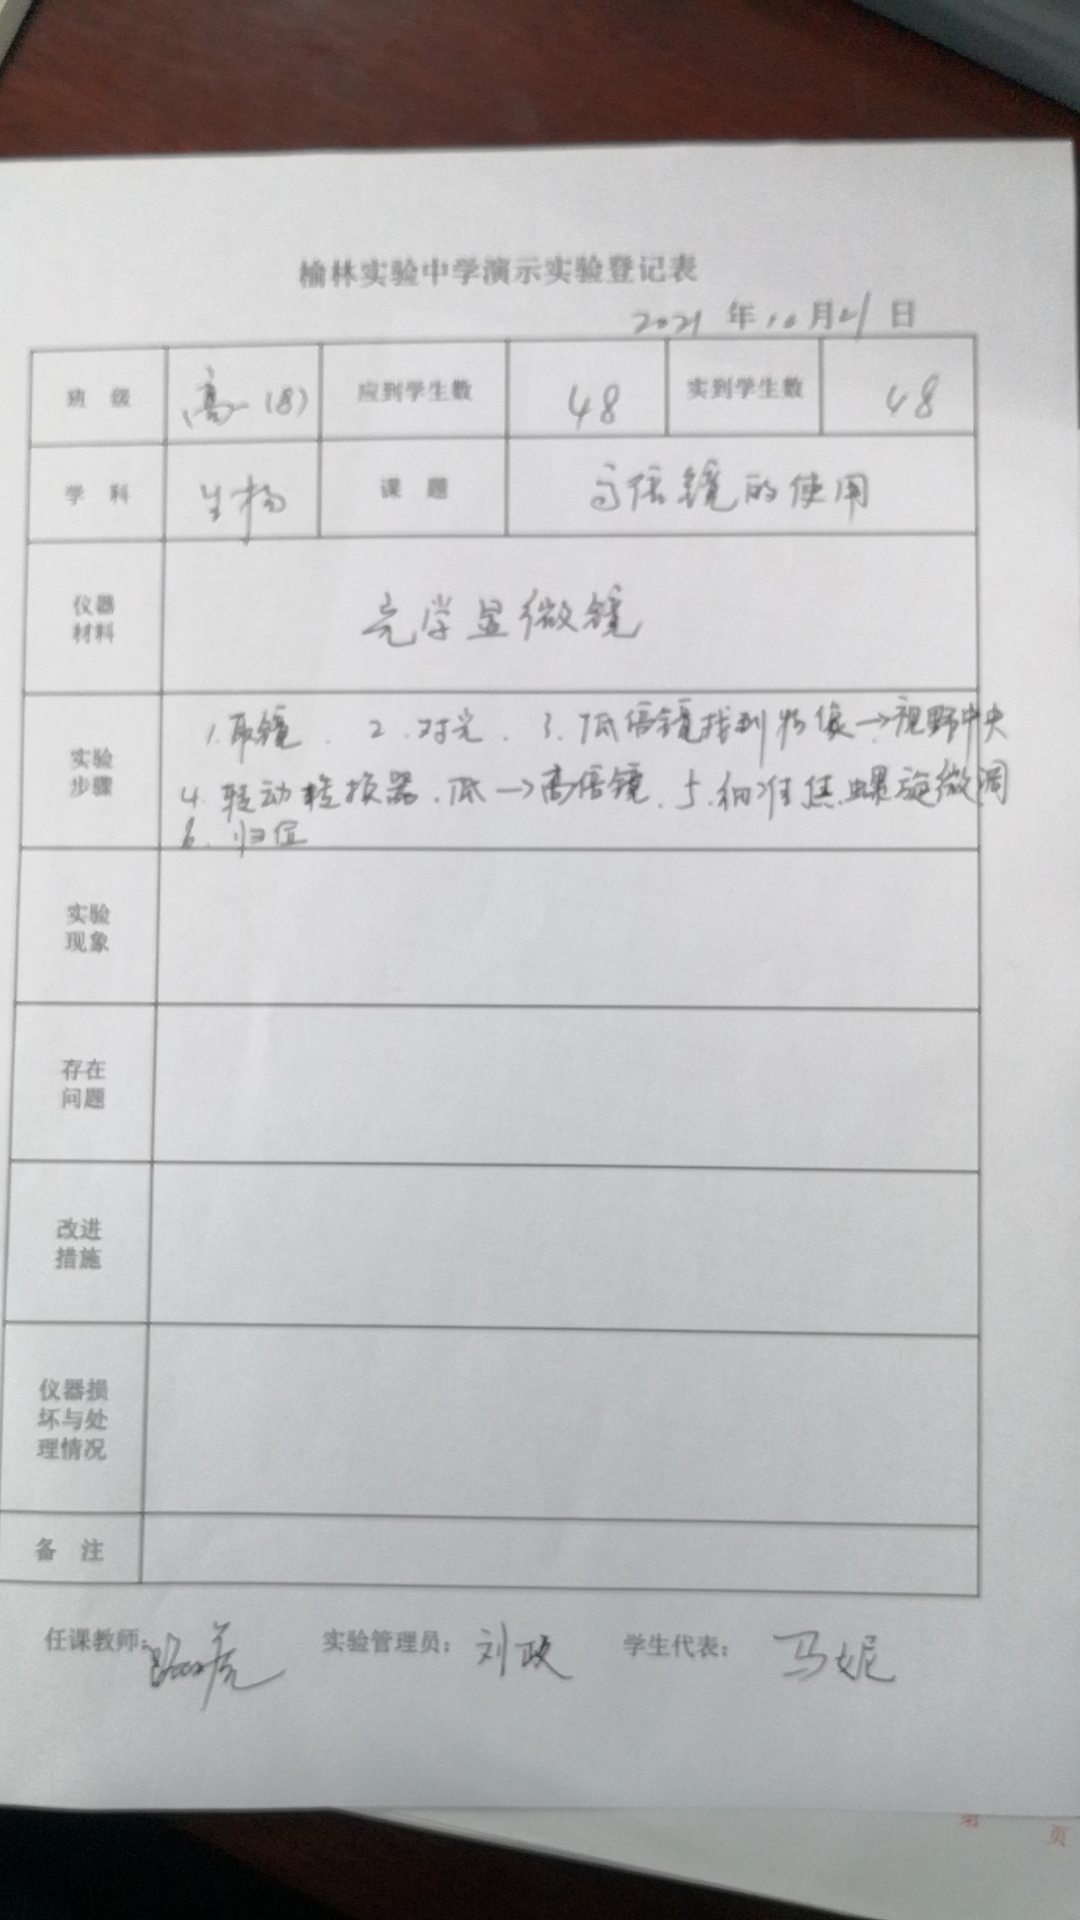 榆林实验中学演示实验登记表
2021 年 10 月 21 日
班 级 高一(8) 应到学生数 48 实到学生数 48
学 科 生物 课 题 高倍镜的使用
仪器
材料
光学显微镜
实验
步骤
1. 取镜、 2. 对光、 3. 低倍镜找到物像→视野中央
4. 转动转换器、低→高倍镜、5. 细准焦螺旋微调
6. 归位
实验
现象
存在
问题
改进
措施
仪器损
坏与处
理情况
备 注
任课教师: 实验管理员: 刘政 学生代表: 马妮
第 页